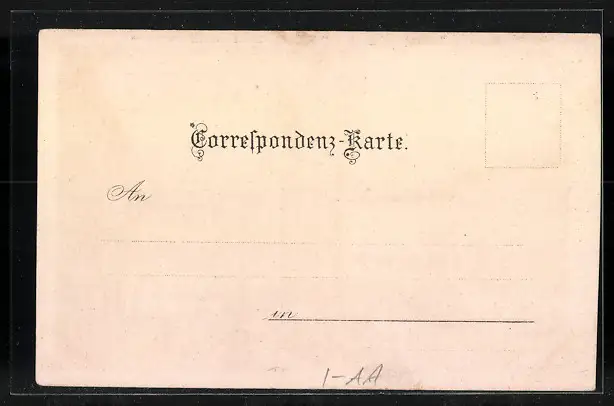 Correſpondenz-Karte.
An
in
1-AA